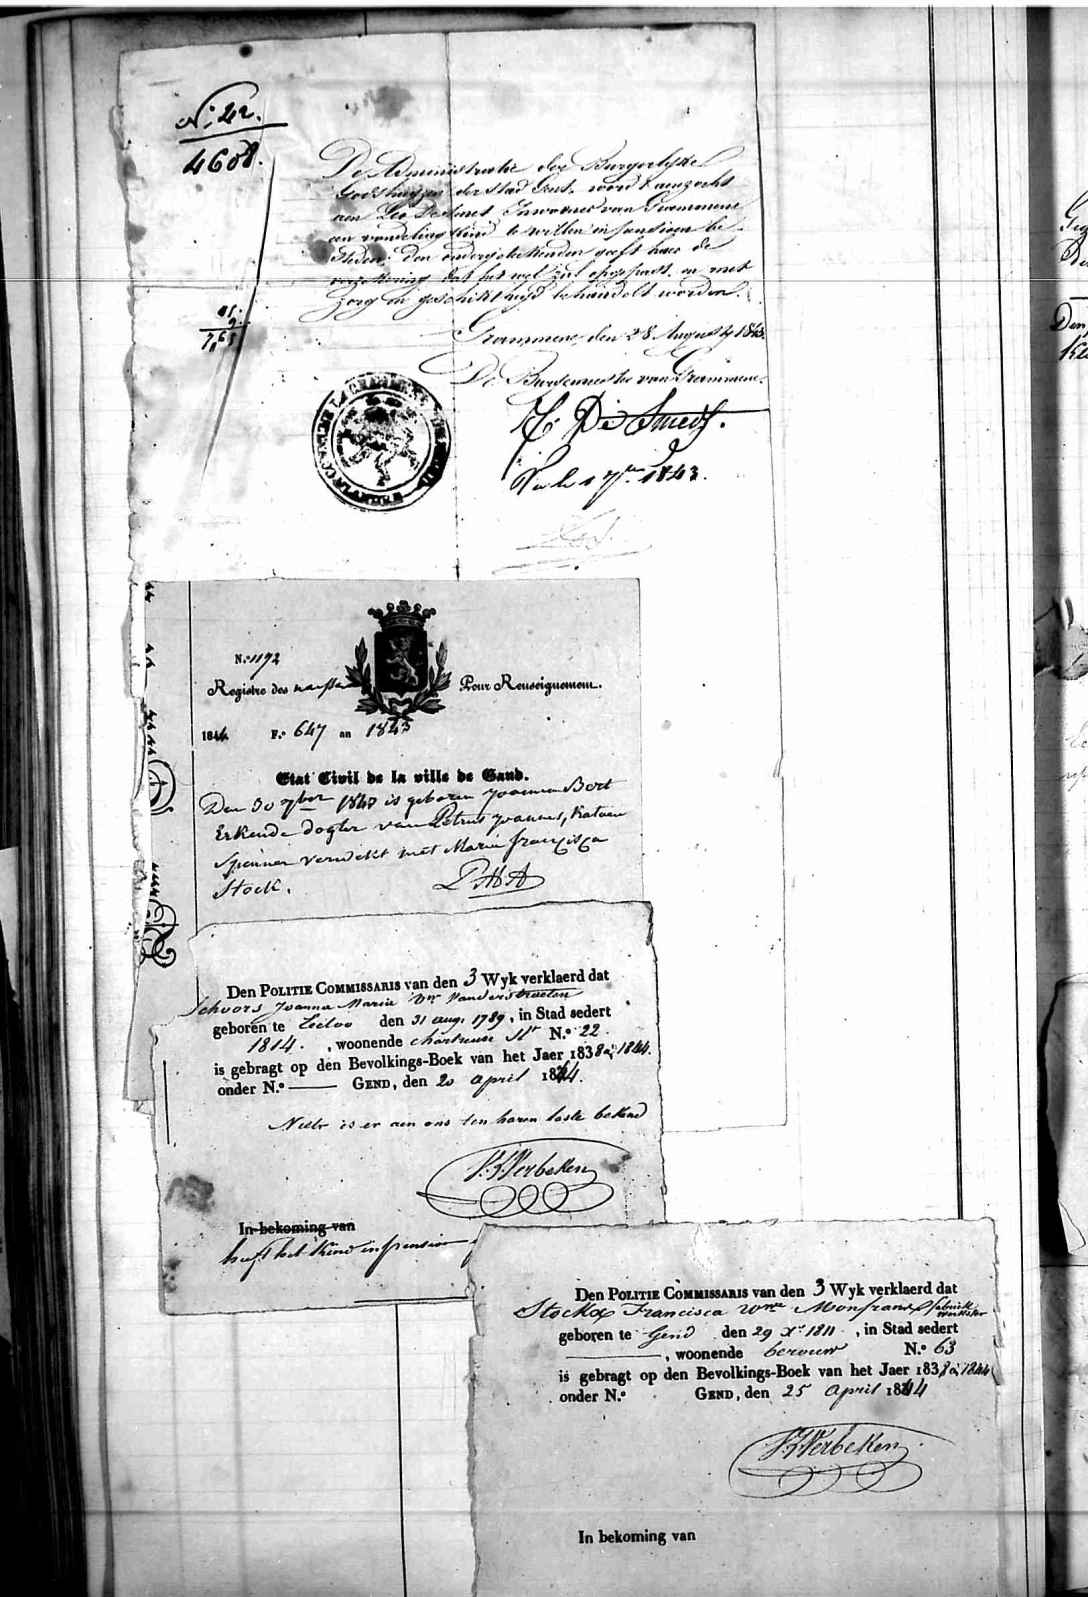 N.º 42.
4608.
De Administratie der Burgerlyke
Godshuyzen der stad Gent, word aanzocht
aen Leo De Smet Inwooner van Grammene
een vondeling kind te willen in pensioen be-
steden; den ondergeteekenden geeft hier de
verzekering dat het wel zal opgepast, en met
zorg en geschiktheyd behandelt worden.
Grammene den 28 Augusty 1843.
De Burgemeester van Grammene.
De Smedt.
1 7bre 1843.
N.º 1192
Registre des Pour Renseignement.
1844 F.º 647 an 1843
Etat Civil de la ville de Gand.
Den 30 7ber 1843 is geboren Joanna Bort
Erkende dogter van Petrus Joannes, Katoen
Spinner verwekt met Maria francisca
Stock.
Den POLITIE COMMISSARIS van den 3 Wyk verklaerd dat
Schoors Joanna Maria Vanderstraeten
geboren te Eecloo den 31 aug. 1789, in Stad sedert
1814. , woonende chartreuse st N.º 22.
is gebragt op den Bevolkings-Boek van het Jaer 1838 à 1844.
onder N.º —— GEND, den 20 april 1844.
Niets is er aen ons ten haren laste bekend
Verbeken
In bekoming van
heeft het kind in pensioen
Den POLITIE COMMISSARIS van den 3 Wyk verklaerd dat
Stockx Francisca fabriek
werkster
geboren te Gend den 29 Xr 1811. , in Stad sedert
——, woonende berouw N.º 63
is gebragt op den Bevolkings-Boek van het Jaer 1838 à 1844
onder N.º GEND, den 25 april 1844
Verbeken
In bekoming van